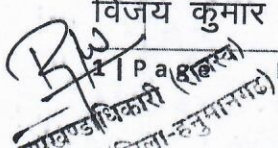 विजय कुमार
1 | Page
खण्ड अधिकारी (राजस्व)
(जिला-हनुमानगढ़)